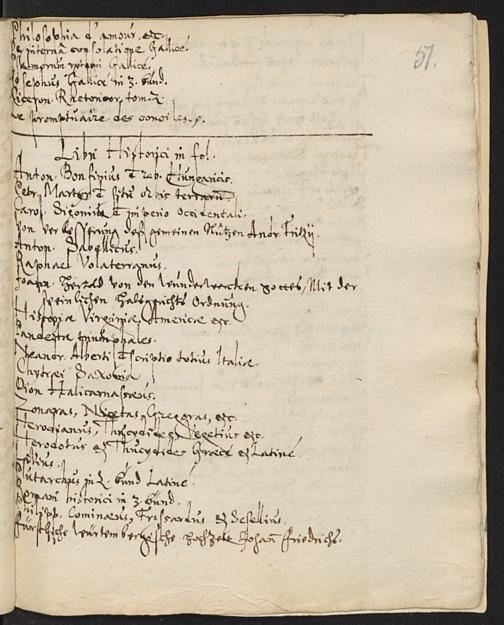 51.
Philosophia d'amour, etc.
De interna consolatione Gallicè.
Gallicè.
Josephus Gallicè in 3. bund.
Ciceron. Rhetoricor. tom. 2.
Le promptuaire des conciles.
Libri Historici in fol.
Anton. Bonfinius de reb. Hungaricis.
Petr. Martyr de situ orbis terrarum
Carol. Sigonius de imperio occidentali.
Von verbesserung deß gemeinen Nutzen Andr.
Anton. Sabellicus.
Raphael Volaterranus.
Joann. Herold von den Wunderwercken Gottes, Mit der
peinlichen halsgerichts Ordnung.
Historia Virginiae, Americae etc.
Pandectae triumphales.
Leandr. Alberti descriptio totius Italiae.
Chytraei Saxonia.
Dion Halicarnasseus.
Zonaras, Nicetas, Gregoras, etc.
Herodianus, Thucydides, Vegetius etc.
Herodotus et Thucydides Graecè et Latinè.
Plutarchus in 2. bund Latinè.
Romani historici in 3. bund.
Philipp. Cominaeus, Frossardus et Sesellius.
Fürstliche Würtembergische hochzeit Johan Friedrichs.